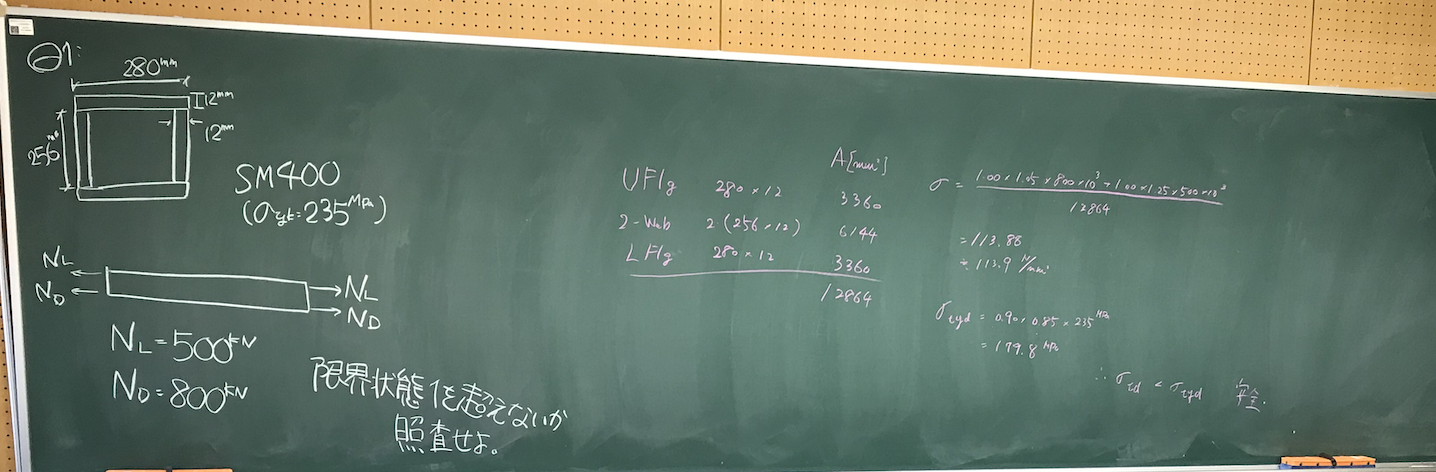 ㊀1:
280mm
12mm
12mm
256mm
SM400
(σyt=235MPa)
NL
ND
NL
ND
NL=500kN
ND=800kN
限界状態1を超えないか
照査せよ。
A[mm²]
UFlg 280×12 3360
2-Web 2(256×12) 6144
LFlg 280×12 3360
12864
σ = 1.00×1.05×800×10³+1.00×1.25×500×10³
12864
=113.88
≒113.9 N/mm²
σtyd = 0.90×0.85×235MPa
= 179.8MPa
∴ σtd < σtyd 安全.